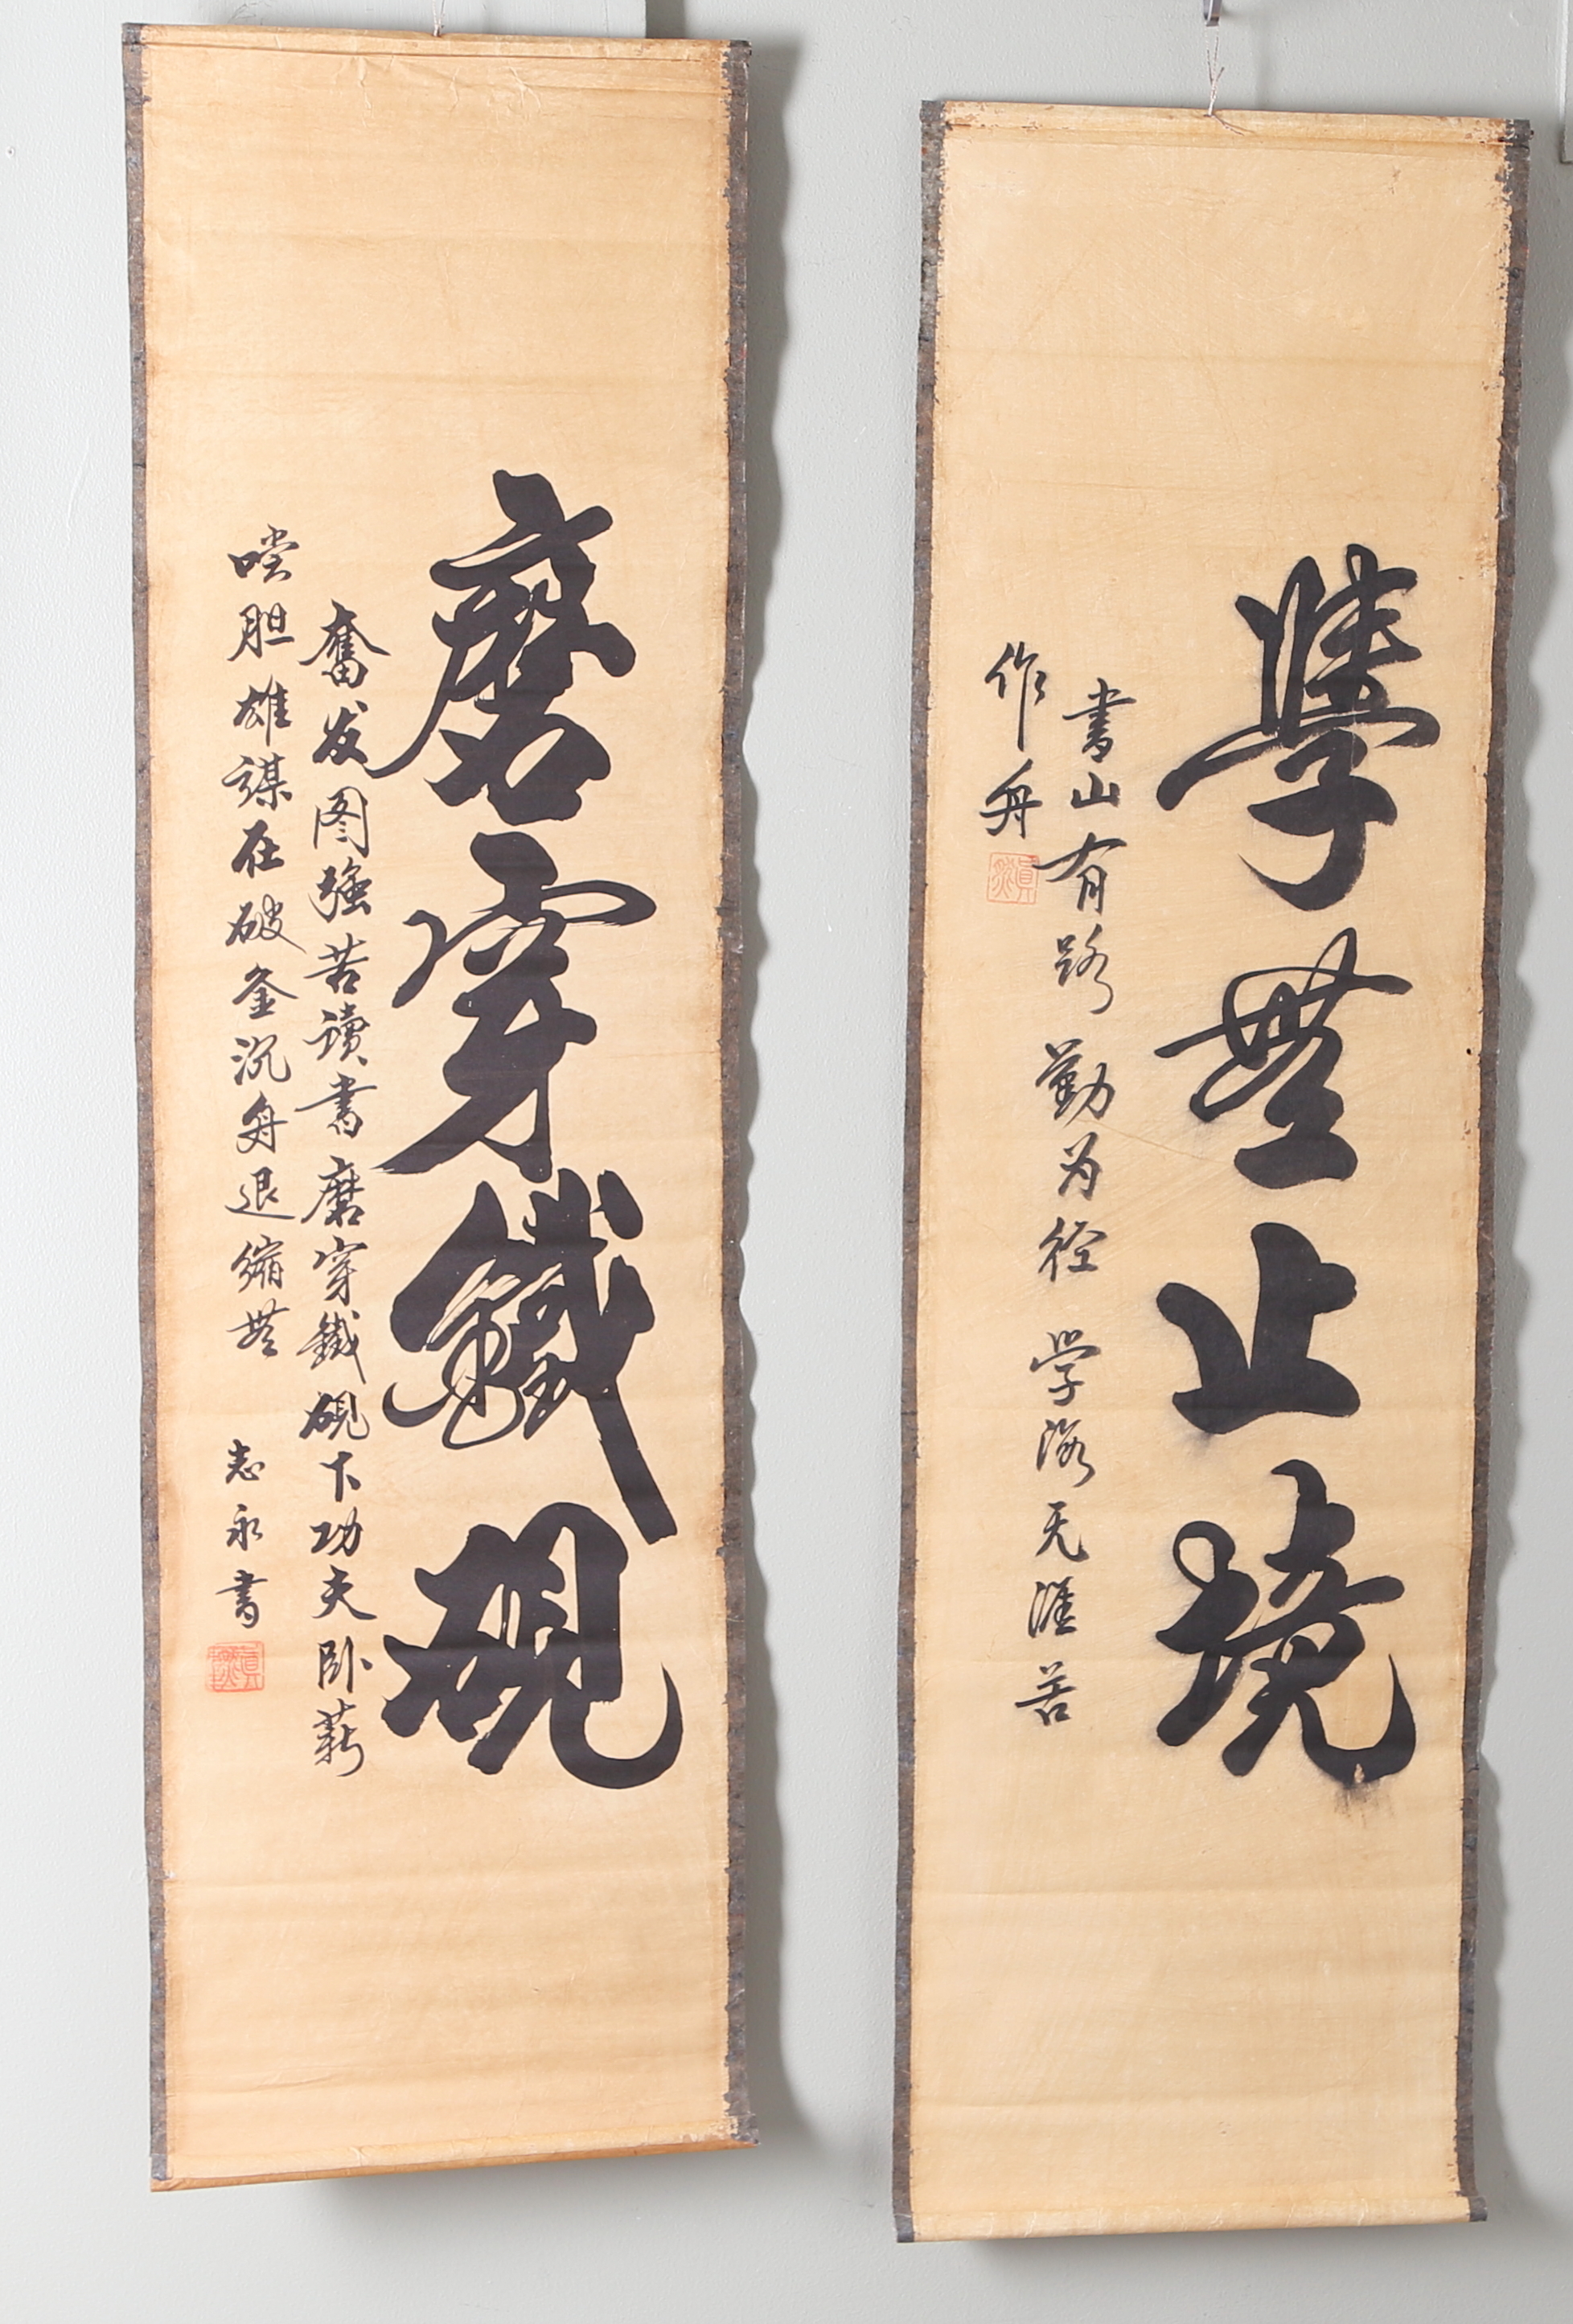 學無止境
書山有路勤为径学海无涯苦
作舟
磨穿鐵硯
奮发图強苦读書磨穿鐵硯下功夫卧薪
嘗胆雄谋在破釜沉舟退縮無
志永書